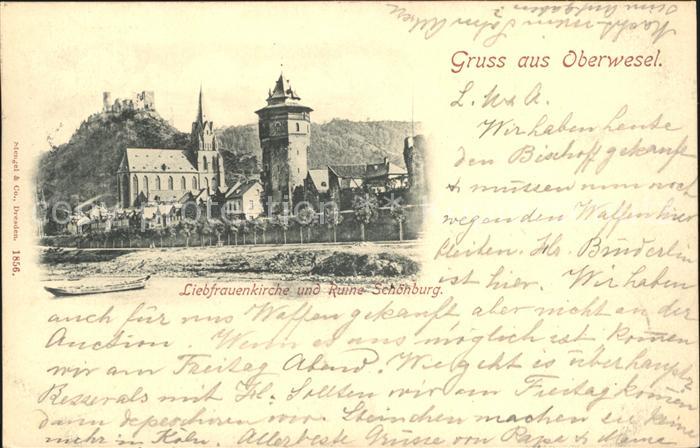 Gruss aus Oberwesel.
L. M & A.
Wir haben heute
den Bischoff gekauft
& müssen nun noch
wegen den Waffen hier
bleiben. Hr. Brüderlin
ist hier. Wir haben
Liebfrauenkirche und Ruine Schönburg.
auch für uns Waffen gekauft aber nicht an der
Auction. Wenn es uns möglich ist kommen
wir am Freitag Abend. Wie geht es überhaupt
Besser als mit Hr. Sollten wir am Freitag kommen
dann depeschoren wir. Steinchen machen
mehr in Köln. Allerbeste Grüsse von Papa &
Mengel & Co., Dresden. 1856.